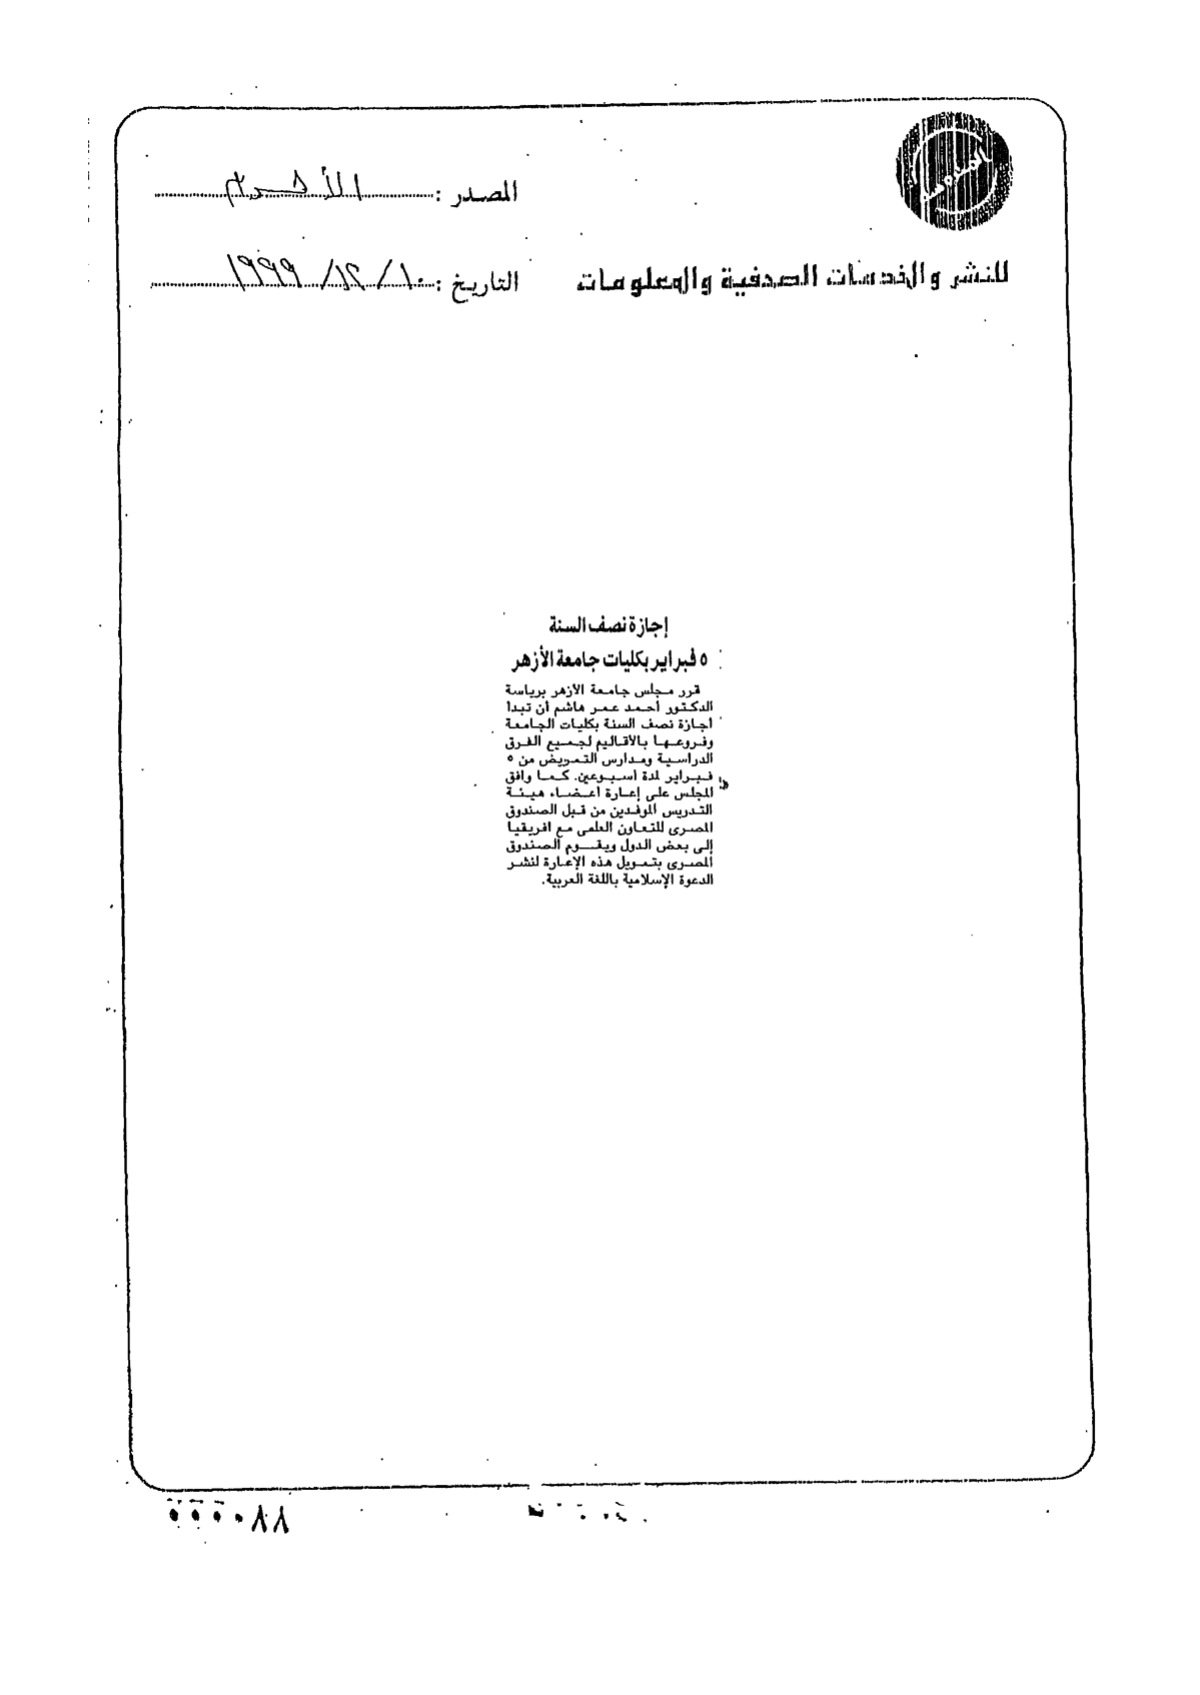 المصدر : الأهرام
للنشر والخدمات الصحفية والمعلومات
التاريخ : ١٠ / ١٢ / ١٩٩٩
إجازة نصف السنة
٥ فبراير بكليات جامعة الأزهر
قرر مجلس جامعة الأزهر برياسة
الدكتور أحمد عمر هاشم أن تبدأ
اجازة نصف السنة بكليات الجامعة
وفروعها بالأقاليم لجميع الفرق
الدراسية ومدارس التمريض من ٥
فبراير لمدة اسبوعين. كما وافق
المجلس على إعارة أعضاء هيئة
التدريس الموفدين من قبل الصندوق
المصرى للتعاون العلمى مع افريقيا
إلى بعض الدول ويقوم الصندوق
المصرى بتمويل هذه الإعارة لنشر
الدعوة الإسلامية باللغة العربية.